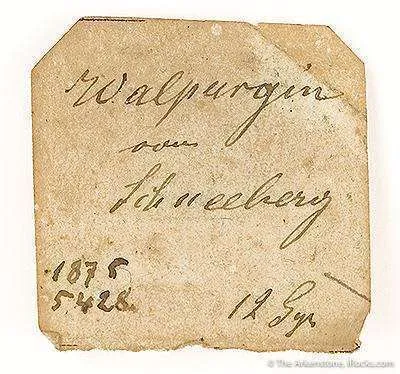 Walpurgin
von
Schneeberg
1875
5428
12 Sgr
© The Arkenstone, iRocks.com